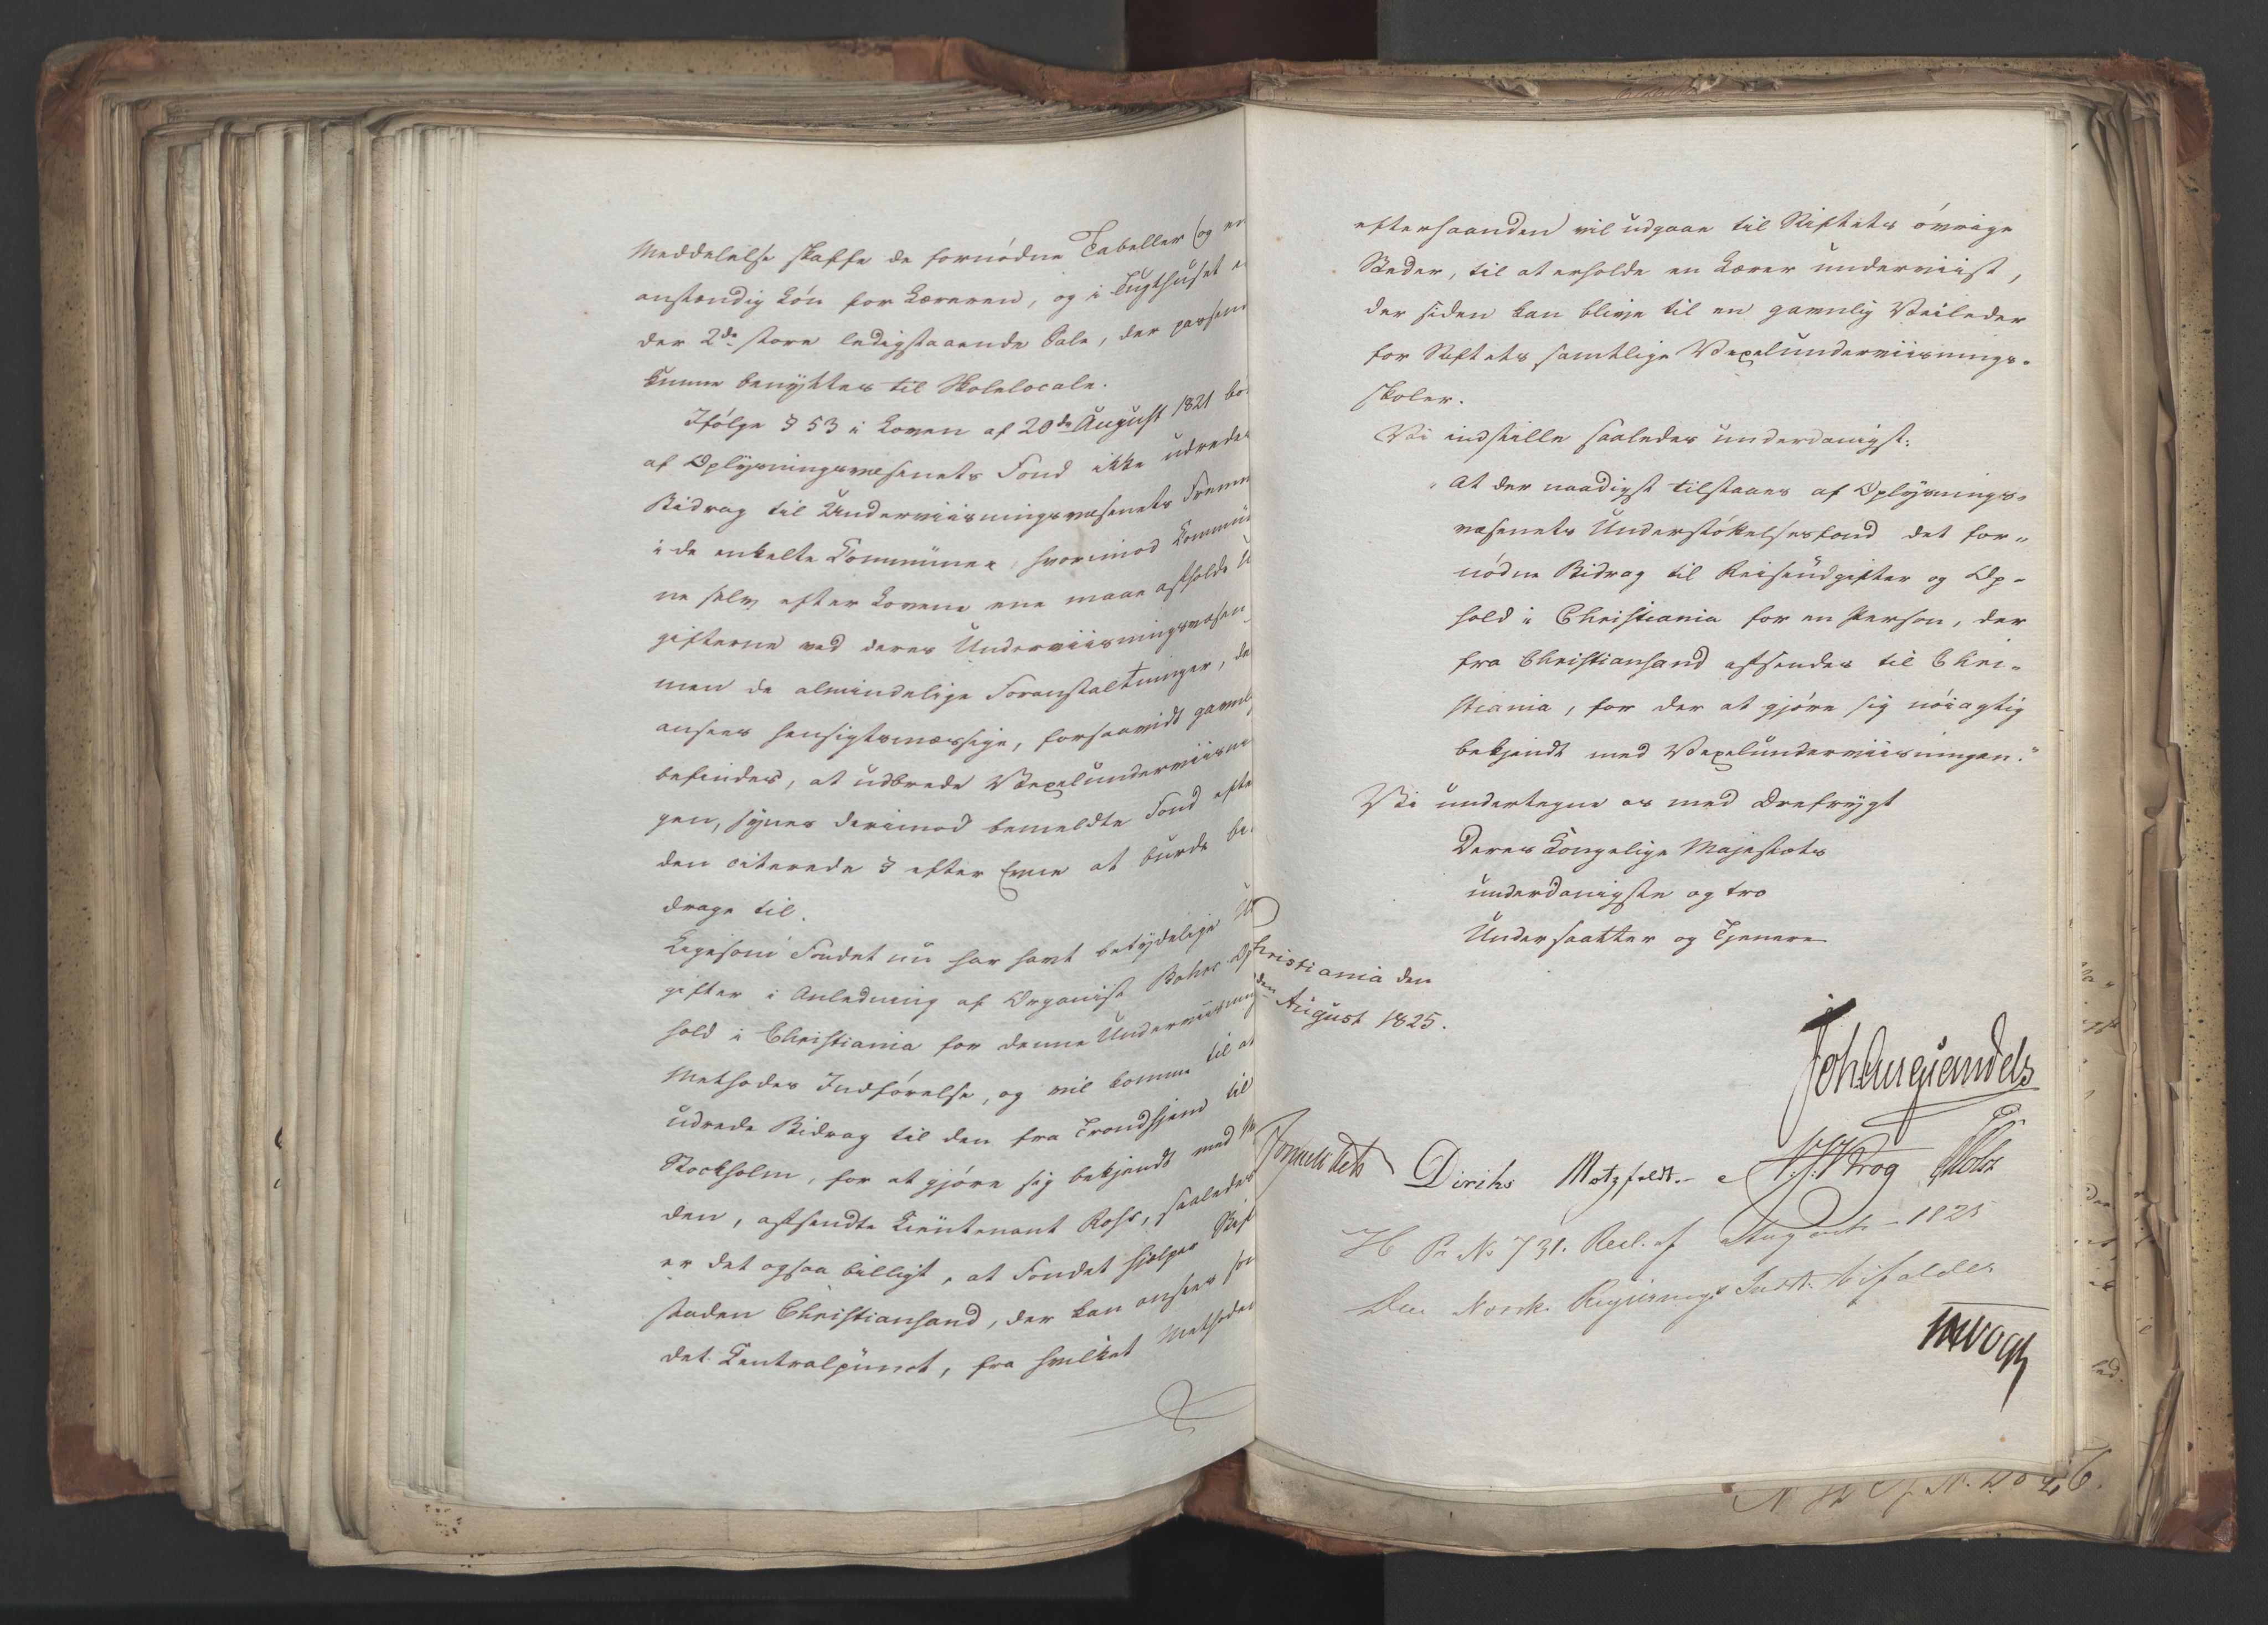 Meddelelse skaffe de fornödne Tabeller (og en
anstændig Lön for Læreren, og i Tugthuset e
der 2de store ledigstaaende Sale, der passend
kunne benyttes til Skolelocale.
Ifölge § 53 i Loven af 20de August 1821 bö
af Oplysningsvæsenets Fond ikke udredes
Bidrag til Underviisningsvæsenets Fremm
i de enkelte Communer, hvorimod Commu
ne selv efter Lovene ene maae afholde U
gifterne ved deres Underviisningsvæsen
men de almindelige Foranstaltninger, de
ansees hensigtsmæssige, forsaavidt gavnlig
befindes, at udbrede Vexelunderviisnin
gen, synes derimod bemeldte Fond efter
den citerede § efter Evne at burde bi
drage til.
Ligesom Fondet nu har havt betydelige Ud
gifter i Anledning af Organist Rohrs Op
hold i Christiania for denne Underviisning
Methodes Indförelse, og vil komme til at
udrede Bidrag til den fra Trondhjem til
Stockholm, for at gjöre sig bekjendt med
den, afsendte Lieutenant , saaledes
er det ogsaa billigt, at Fondet hjelper Stift
staden Christiansand, der kan ansees som
det Centralpunct, fra hvilket Methoden
efterhaanden vil udgaae til Stiftets övrige
Steder, til at erholde en Lærer underviist,
der siden kan blive til en gavnlig Veileder
for Stiftets samtlige Vexelunderviisnings-
skoler.
Vi indstille saaledes underdanigst:
"At der naadigst tilstaaes af Oplysnings-
væsenets Understöttelsesfond det for-
nödne Bidrag til Reiseudgifter og Op-
hold i Christiania for en Person, der
fra Christiansand afsendes til Chri-
stiania, for der at gjöre sig nöiagtig
bekjendt med Vexelunderviisningen."
Vi undertegne os med Ærefrygt
Deres Kongelige Majestæts
underdanigste og tro
Undersaatter og Tjenere
Christiania den
den August 1825.
Diriks Motzfeldt. Krog Holst
No 731. Resl. af August 1825
Den Norske Regjerings Indst. bifaldes